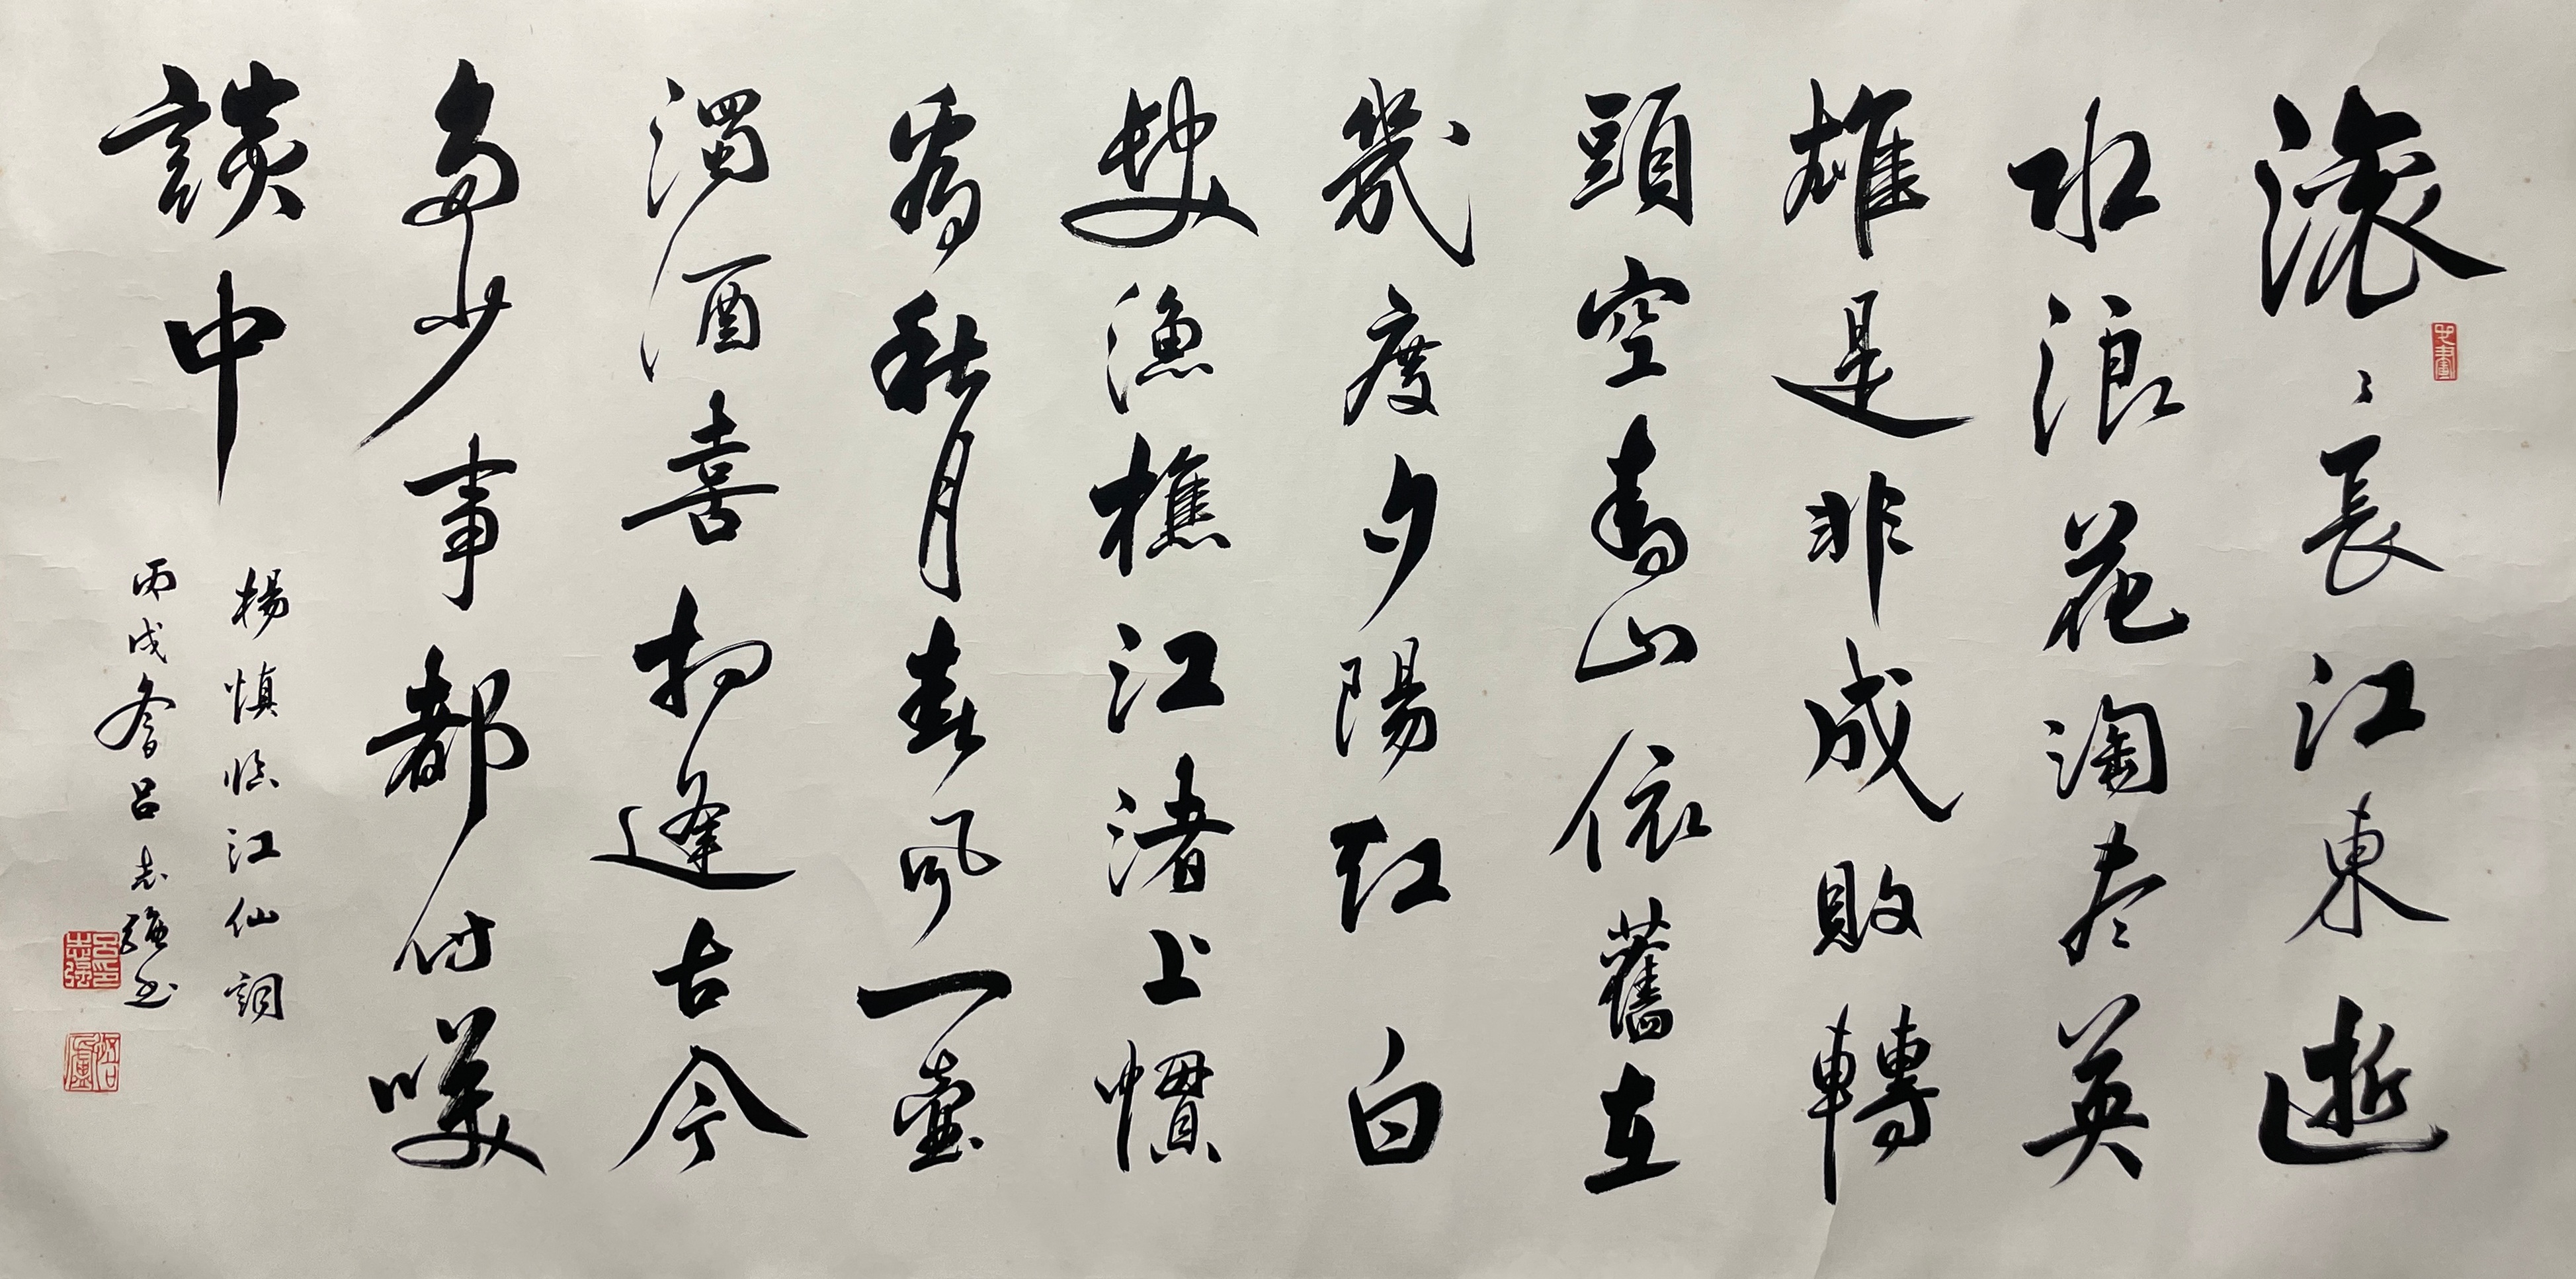 滚〻長江東逝
水浪花淘尽英
雄是非成敗轉
頭空青山依舊在
幾度夕陽紅白
髮漁樵江渚上慣
看秋月春風一壺
濁酒喜相逢古今
多少事都付咲
談中
楊慎臨江仙詞
丙戌呂志強书
呂印志强